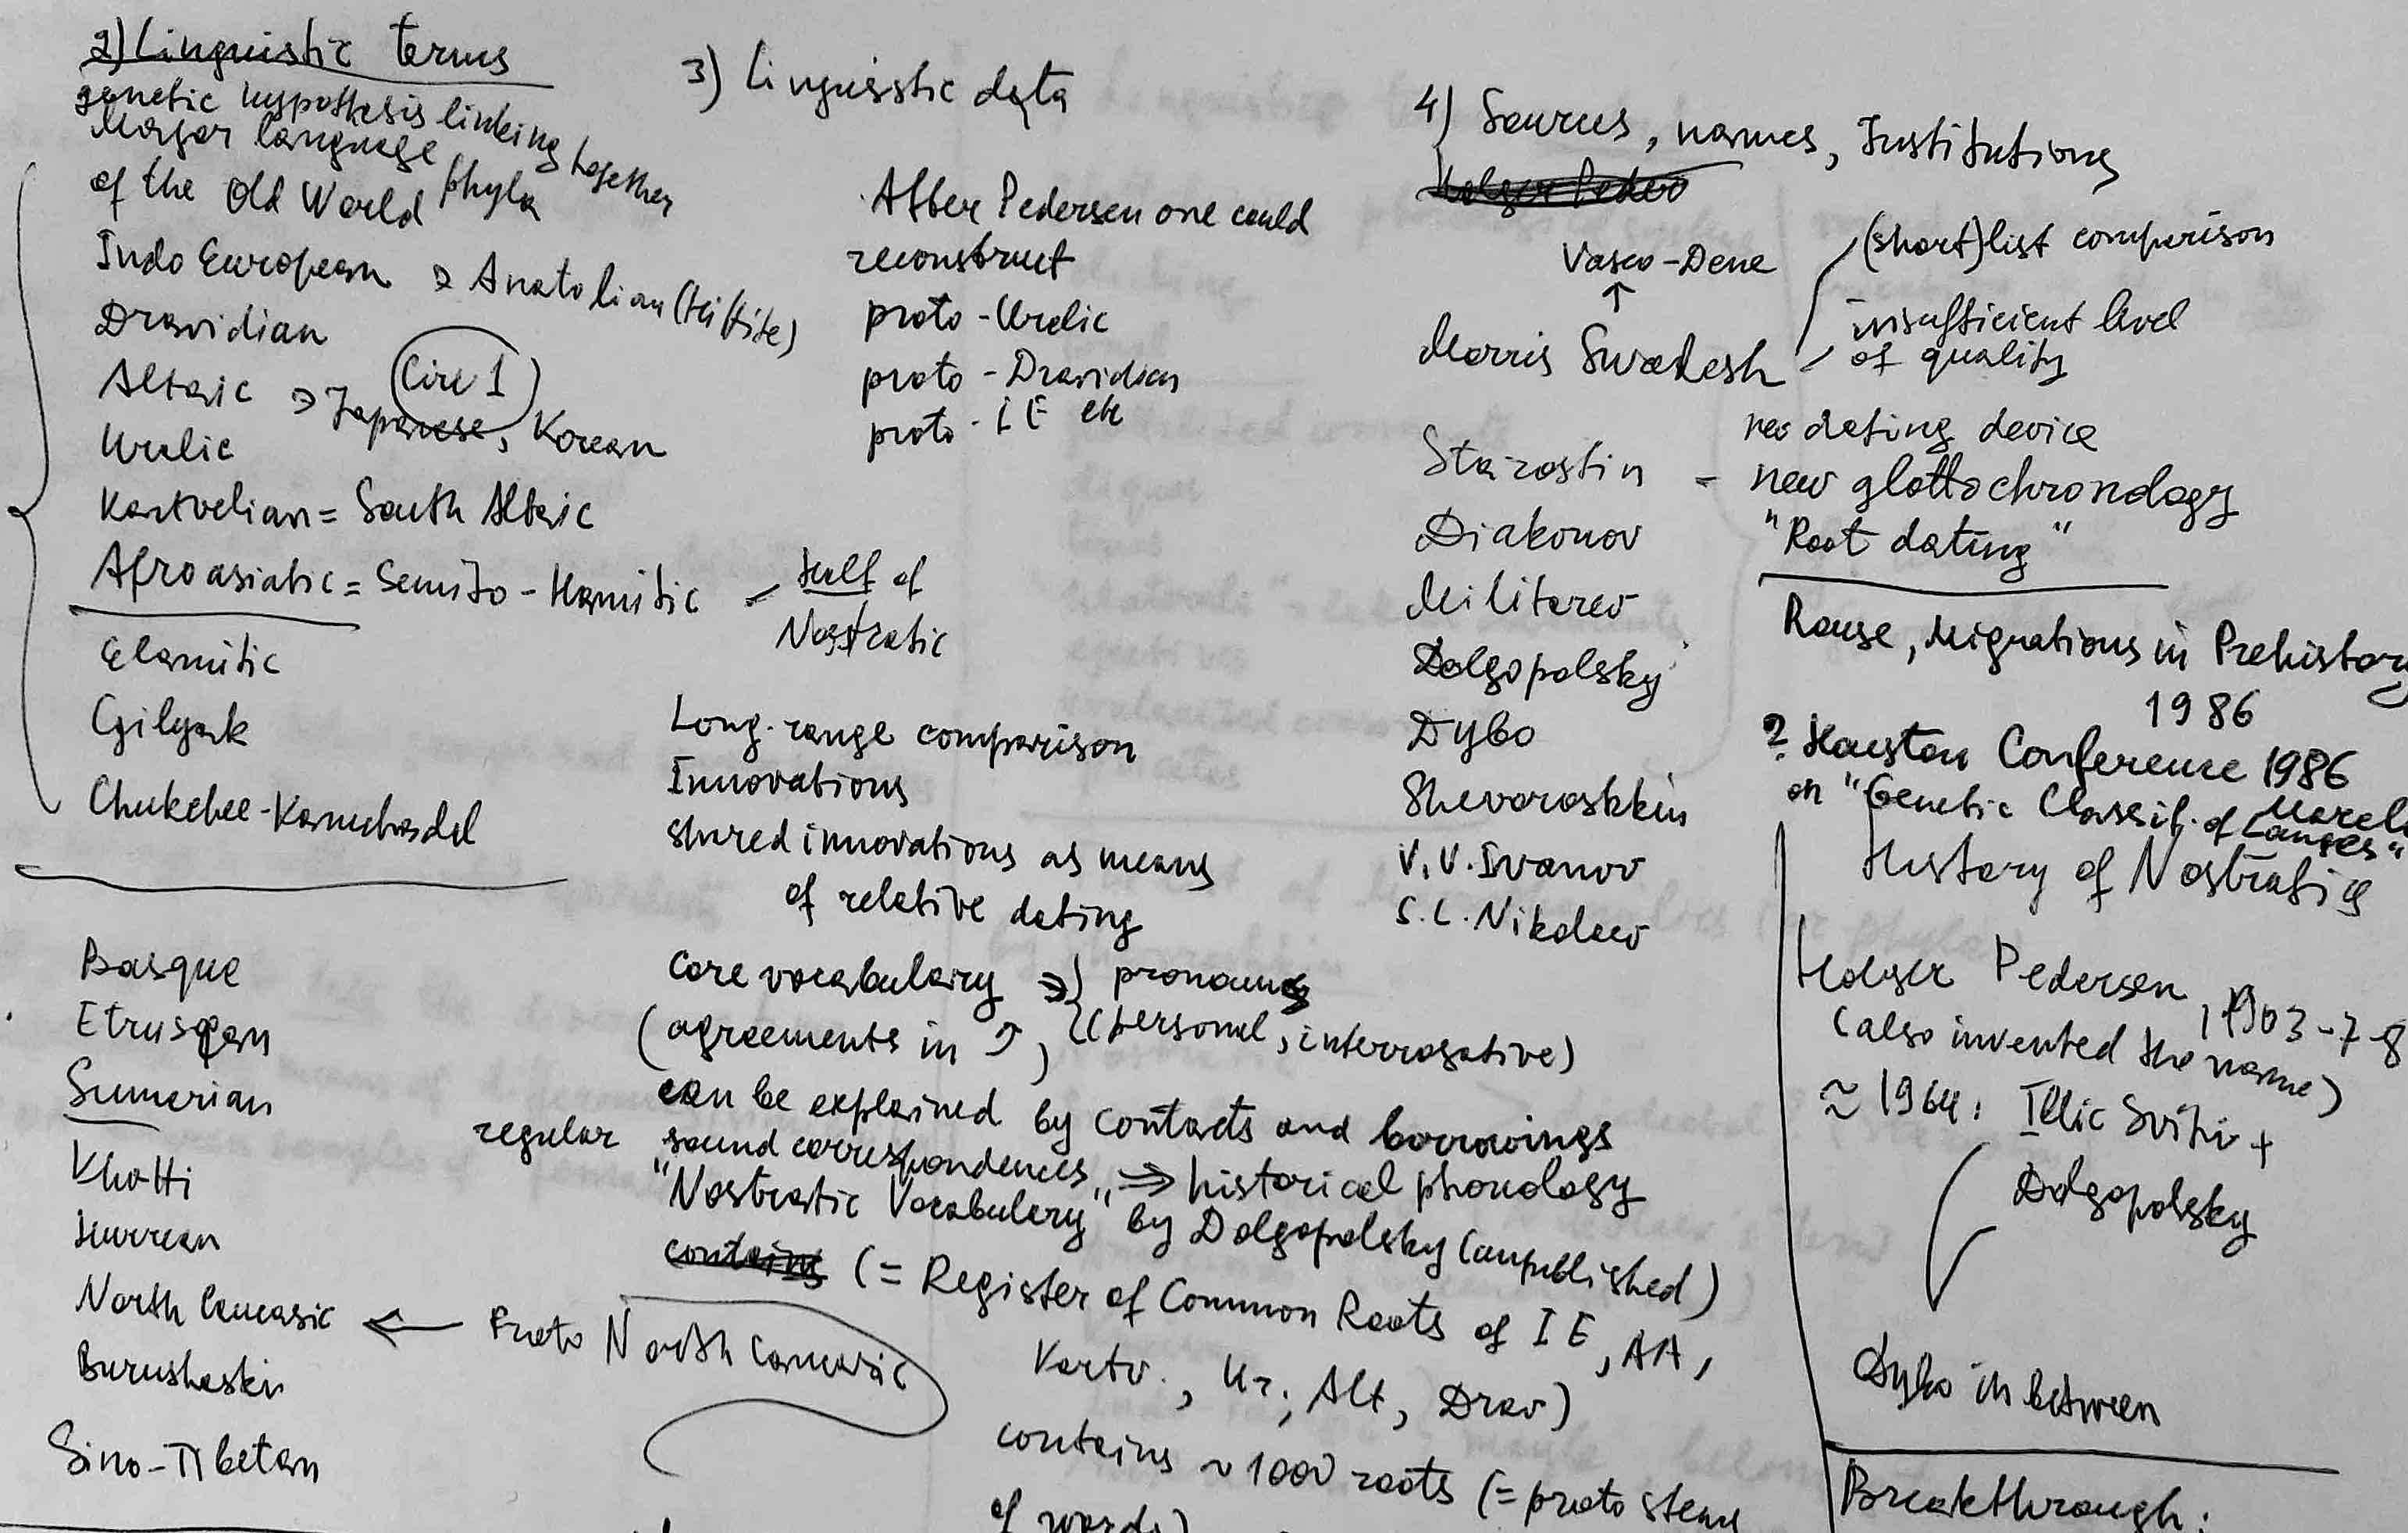 2) Linguistic terms
genetic hypothesis linking together
Major language phyla
of the Old World
Indo European → Anatolian (Hittite)
Dravidian
Altaic → Japanese, Korean
Uralic
Kartvelian = South Altaic
Afroasiatic = Semito-Hamitic - Half of
Nostratic
Elamitic
Gilyak
Chukchee-Kamchadal
Basque
Etruscan
Sumerian
Khatti
Hurrean
North Caucasic ← Proto North Caucasic
Burushaski
Sino-Tibetan
3) Linguistic data
After Pedersen one could
reconstruct
proto-Uralic
proto-Dravidian
proto-IE etc
Long-range comparison
Innovations
shared innovations as means
of relative dating
Core vocabulary ⇒ pronouns
(agreements in ↑, (personal, interrogative)
can be explained by contacts and borrowings
regular sound correspondences ⇒ historical phonology
"Nostratic Vocabulary" by Dolgopolsky (unpublished)
contains (= Register of Common Roots of IE, AA,
Kartv., Ur., Alt, Drav)
contains ~1000 roots (= proto stems
of words)
4) Sources, names, Institutions
Holger Peder
Vasco-Dene
↑
Morris Swadesh
(short)list comparison
insufficient level
of quality
dating device
Starostin - new glottochronology
"Root dating"
Diakonov
Militarev
Dolgopolsky
Dybo
Shevoroshkin
V.V. Ivanov
S.L. Nikolaev
Rouse, Migrations in Prehistory
1986
? Houston Conference 1986
on "Genetic Classif. of Langes"
History of Nostratics
Holger Pedersen, 1903-7-8
(also invented the name)
≈ 1964: Illic Svityi +
Dolgopolsky
Dybo in between
Breakthrough: